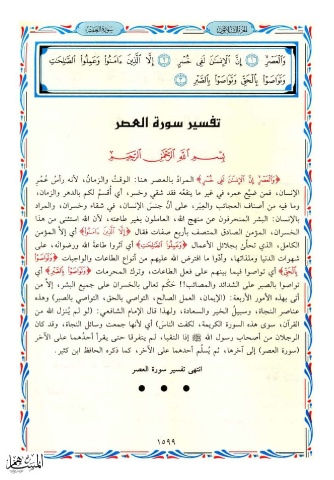 الجزء الثلاثون
سورة العصر
وَالْعَصْرِ ۝١ إِنَّ الْإِنسَانَ لَفِي خُسْرٍ ۝٢ إِلَّا الَّذِينَ ءَامَنُوا وَعَمِلُوا الصَّالِحَاتِ
وَتَوَاصَوْا بِالْحَقِّ وَتَوَاصَوْا بِالصَّبْرِ ۝٣
تفسير سورة العصر
بِسْمِ اللَّهِ الرَّحْمَنِ الرَّحِيمِ
﴿وَالْعَصْرِ إِنَّ الْإِنسَانَ لَفِي خُسْرٍ﴾ المرادُ بالعصر هنا: الوقتُ والزمانُ، لأنه رأسُ عُمُر
الإنسان، فمن ضيَّع عمره في غير ما ينفعه فقد شقي وخسر، أي أقسم لكم بالدهر والزمان،
وما فيه من أصناف العجائب والعِبَر، على أنَّ جنسَ الإنسان، في شقاء وخسران، والمراد
بالإنسان: البشر المنحرفون عن منهج الله، العاملون بغير طاعته، لأن الله استثنى من هذا
الخسران، المؤمن الصادق المتصف بأربع صفات فقال ﴿إِلَّا الَّذِينَ ءَامَنُوا﴾ أي إلاَّ المؤمن
الكامل، الذي تحلَّى بجلائل الأعمال ﴿وَعَمِلُوا الصَّالِحَاتِ﴾ أي آثروا طاعة الله ورضوانه، على
شهرات الدنيا وملذاتها، وأدَّوا ما افترض الله عليهم من أنواع الطاعات والواجبات ﴿وَتَوَاصَوْا
بِالْحَقِّ﴾ أي تواصوا فيما بينهم على فعل الطاعات، وترك المحرمات ﴿وَتَوَاصَوْا بِالصَّبْرِ﴾ أي
تواصوا بالصبر على الشدائد والمصائب!! حكم تعالى بالخسران على جميع البشر، إلاَّ من
أتى بهذه الأمور الأربعة: (الإيمان، العمل الصالح، التواصي بالحق، التواصي بالصبر) وهذه
عناصر النجاة، وسبيلُ الخير والسعادة، ولهذا قال الإمام الشافعي: (لو لم يُنزل الله من
القرآن، سوى هذه السورة الكريمة، لكفت الناسَ) أي لأنها جمعت وسائل النجاة، وقد كان
الرجلان من أصحاب رسول الله ﷺ إذا التقيا، لم يتفرقا حتى يقرأ أحدُهما على الآخر
(سورة العصر) إلى آخرها، ثم يُسلِّم أحدهما على الآخر، كما ذكره الحافظ ابن كثير.
انتهى تفسير سورة العصر
١٥٩٩